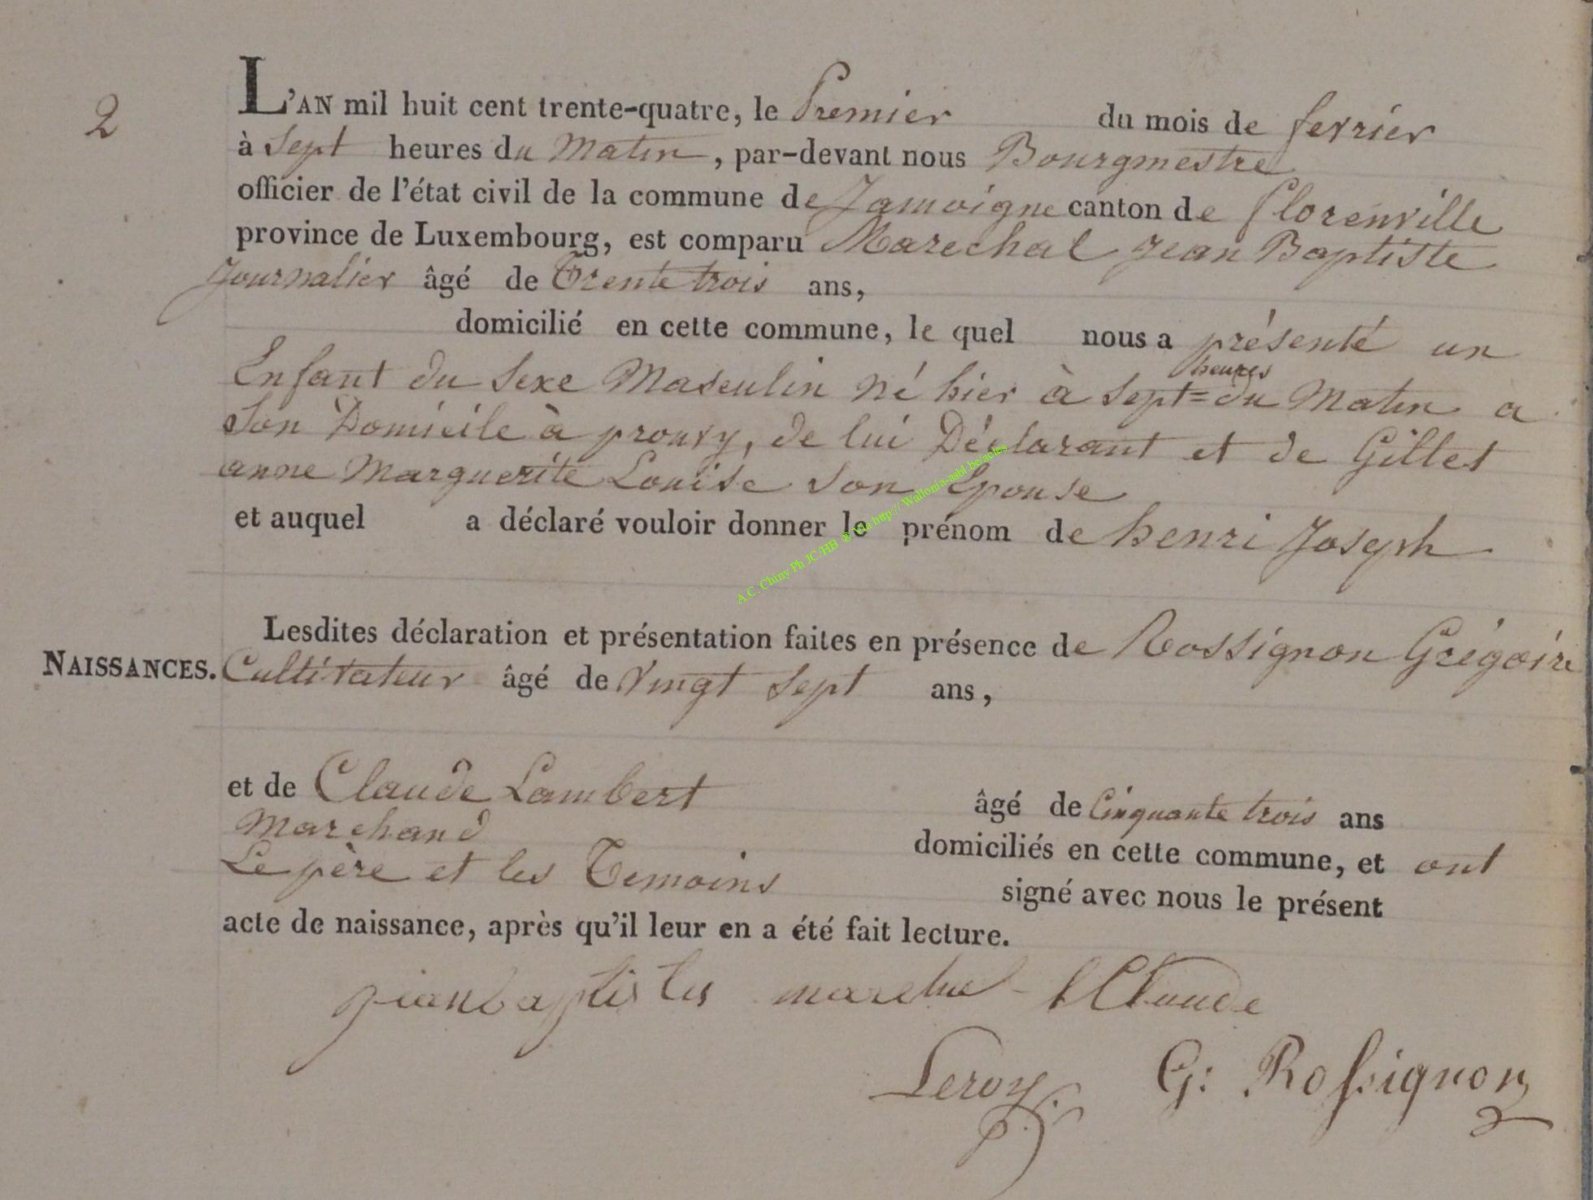 2
L'AN mil huit cent trente-quatre, le Premier du mois de fevrier
à Sept heures du Matin, par-devant nous Bourgmestre
officier de l'état civil de la commune de Jamoigne canton de florenville
province de Luxembourg, est comparu Marechal Jean Baptiste
Journalier âgé de Trente trois ans,
domicilié en cette commune, le quel nous a présenté un
Enfant du Sexe Masculin né hier à Sept = heures du Matin a
Son Domicile à prouvy, de lui Déclarant et de Gillet
anne Marguerite Louise son Epouse
et auquel a déclaré vouloir donner le prénom de henri Joseph
Lesdites déclaration et présentation faites en présence de Rossignon Grégoire
NAISSANCES. Cultivateur âgé de Vingt Sept ans,
et de Claude Lambert âgé de Cinquante trois ans
Marchand domiciliés en cette commune, et ont
Le père et les Temoins signé avec nous le présent
acte de naissance, après qu'il leur en a été fait lecture.
jeanbaptistes marechal L Claude
Leroy. G: Rossignon